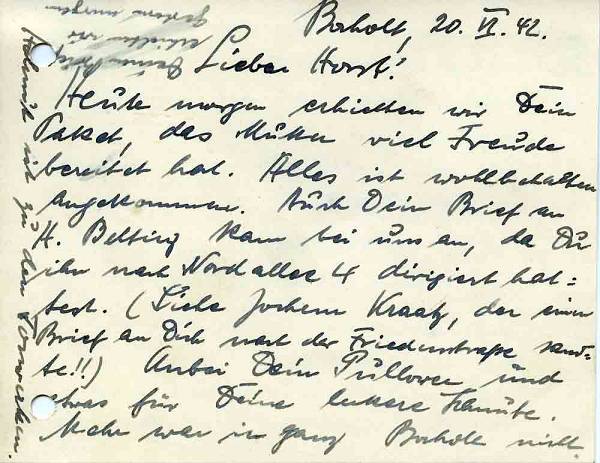 Bocholt, 20. VI. 42.
Lieber Horst!
Heute morgen erhielten wir Dein
Paket, das Mutter viel Freude
bereitet hat. Alles ist wohlbehalten
angekommen. Auch Dein Brief an
H. Belting kam bei uns an, da Du
ihn nach Nordallee 4 dirigiert hat=
test. (Siehe Jochem Kraatz, der einen
Brief an Dich nach der Friedenstraße sand=
te!!) Anbei Dein Pullover und
etwas für Deine leckere Schnute.
Mehr war in ganz Bocholt nicht
Helmut ist zu den
Deinen Brief
erhielten wir
gestern morgen